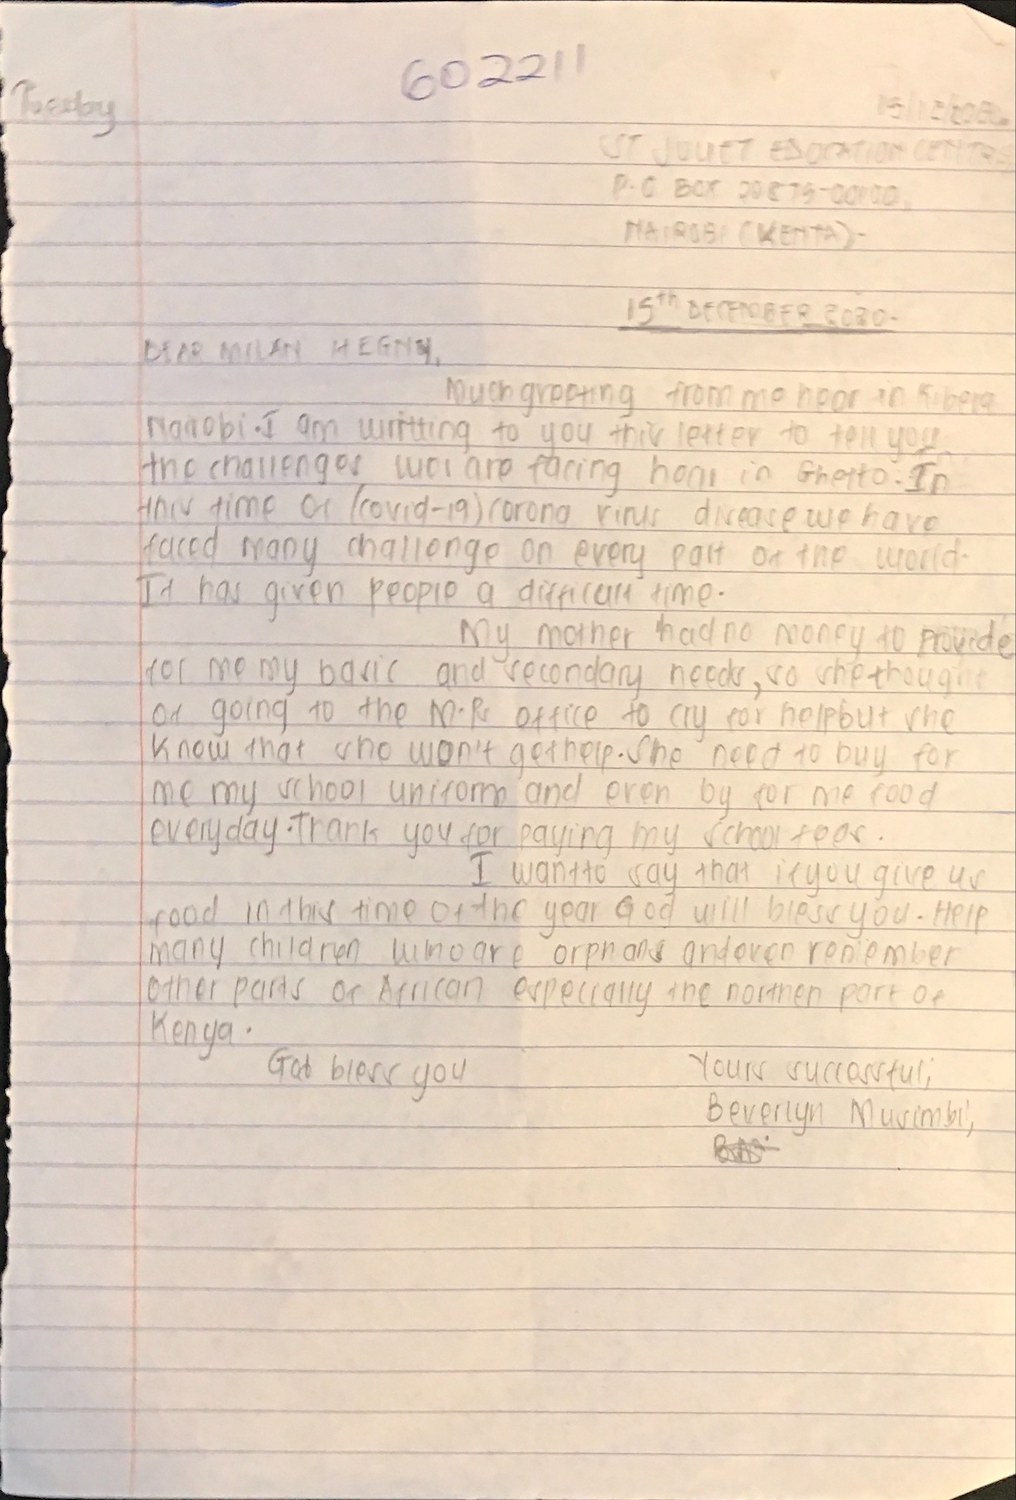 602211
Tuesday
15/12/2020.
ST JULIET EDUCATION CENTRE
P.O BOX 20875-00100,
NAIROBI (KENYA)-
15th DECEMBER 2020-
DEAR MILAN HEGNY,
Much greeting from me hear in Kibera
Nairobi. I am writting to you this letter to tell you
the challenges we are facing hear in Ghetto. In
this time of (covid-19) corona virus disease we have
faced many challenge on every part of the world.
It has given people a difficult time.
My mother had no money to provide
for me my basic and secondary needs, so she thought
of going to the office to cry for help but she
know that she won't get help. She need to buy for
me my school uniform and even by for me food
everyday. Thank you for paying my school fees.
I want to say that if you give us
food in this time of the year God will bless you. Help
many children who are orphans and even remember
other parts of African especially the northen part of
Kenya.
God bless you Yours successful,
Beverlyn Musimbi,